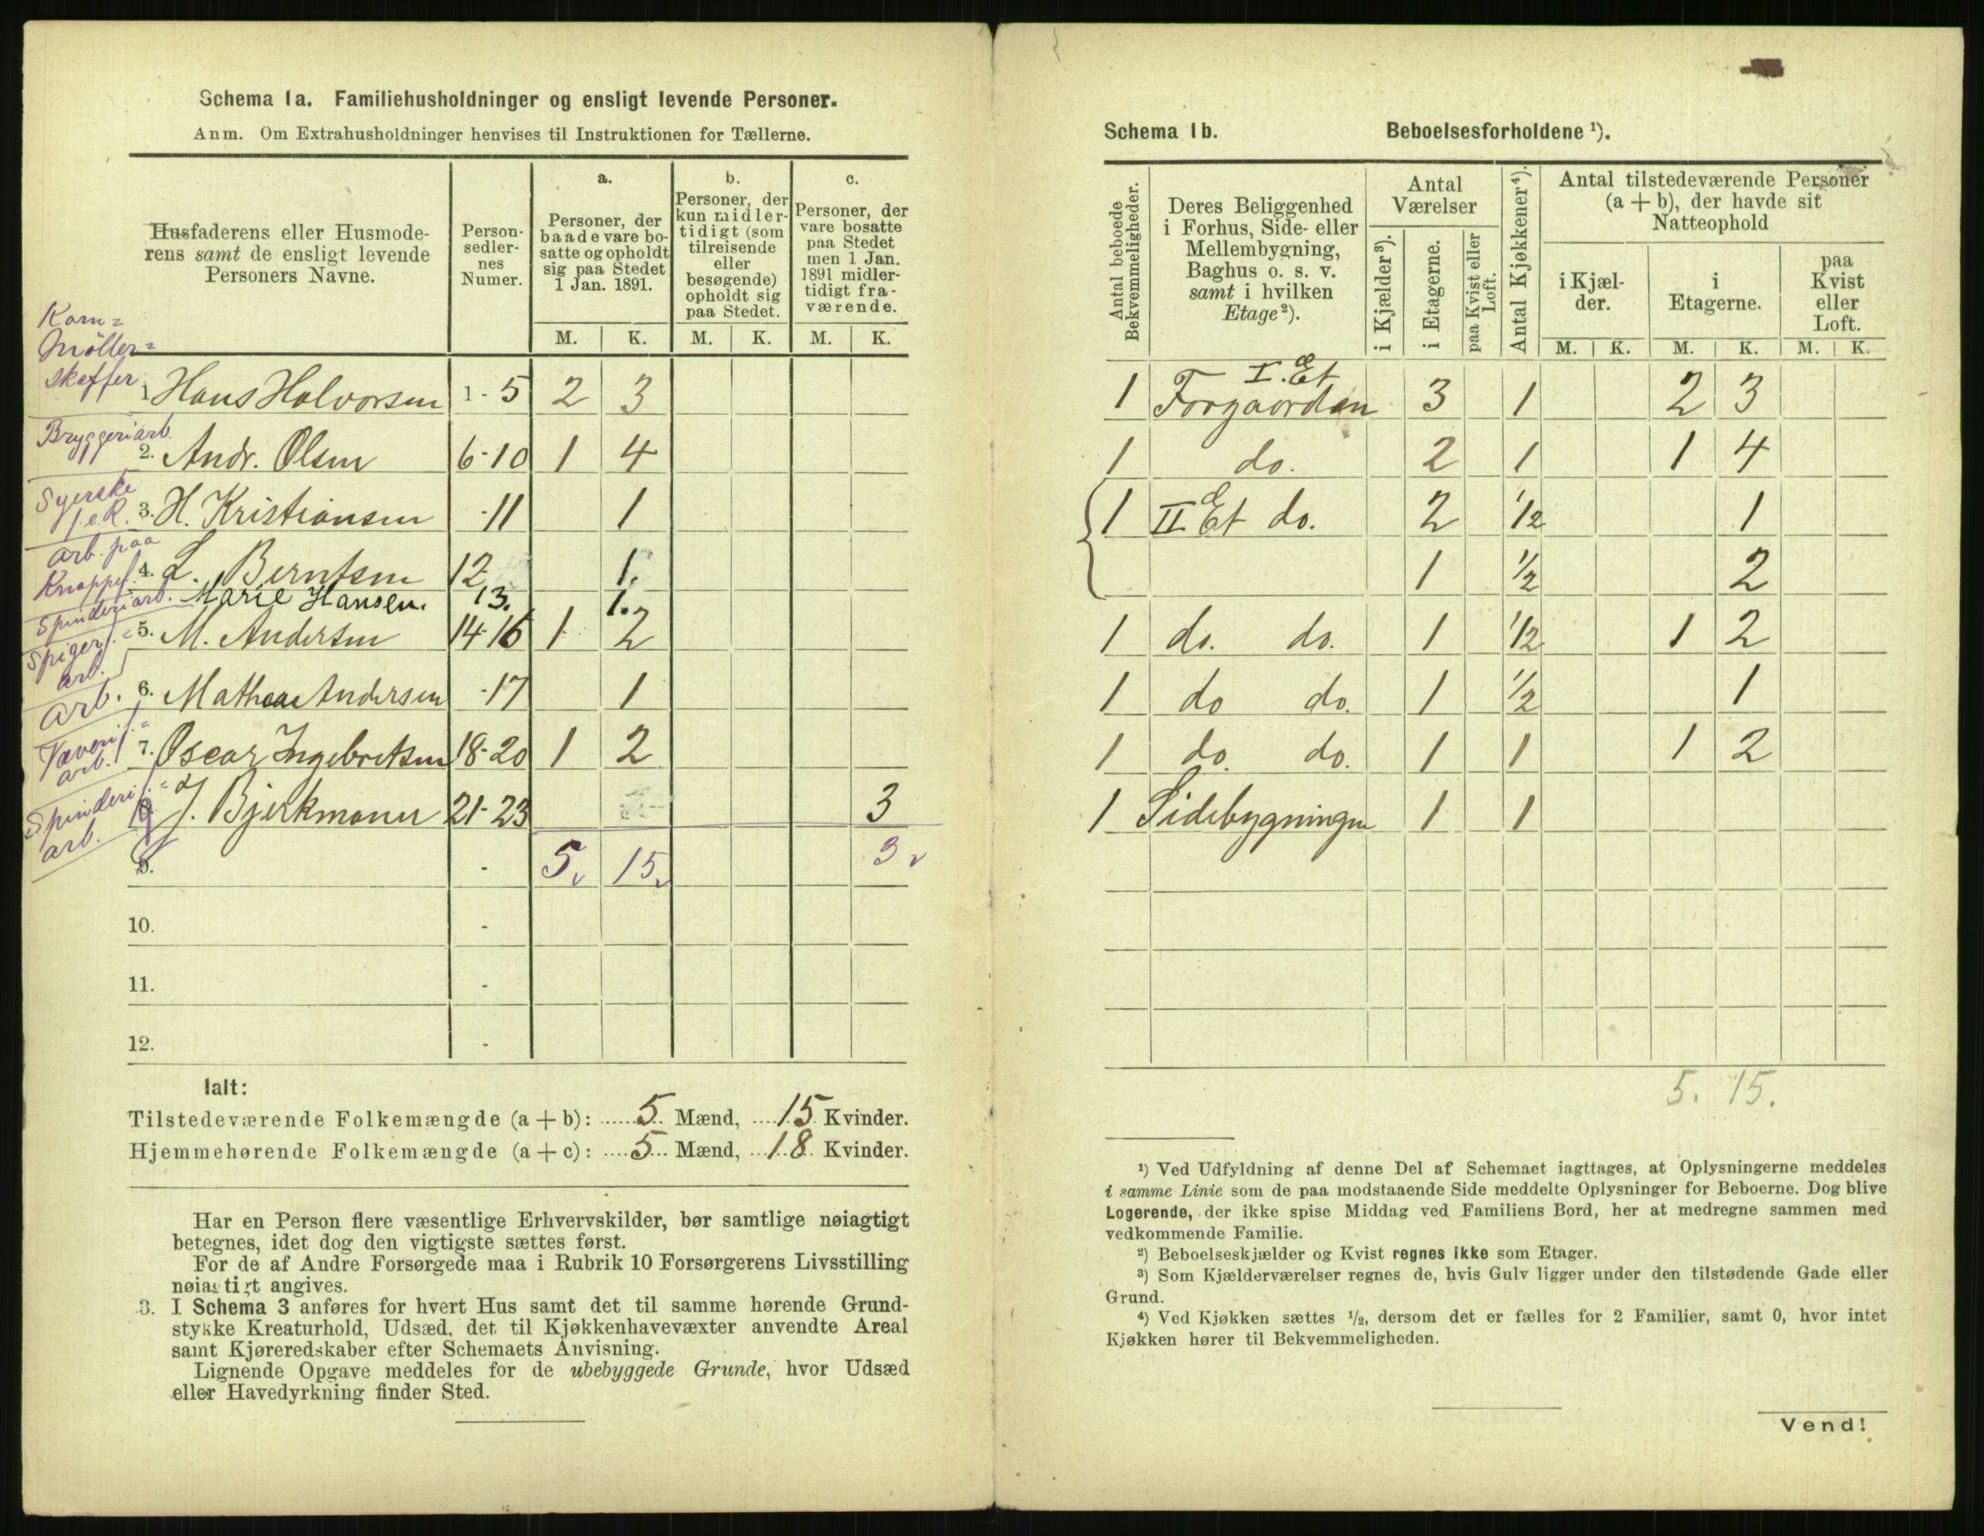 Schema 1a. Familiehusholdninger og ensligt levende Personer.
Anm. Om Extrahusholdninger henvises til Instruktionen for Tællerne.
Husfaderens eller Husmode-
rens samt de ensligt levende
Personers Navne.
Person-
sedler-
nes
Numer.
a.
Personer, der
baade vare bo-
satte og opholdt
sig paa Stedet
1 Jan. 1891.
b.
Personer, der
kun midler-
tidigt (som
tilreisende
eller
besøgende)
opholdt sig
paa Stedet.
c.
Personer, der
vare bosatte
paa Stedet
men 1 Jan.
1891 midler-
tidigt fra-
værende.
M. K. M. K. M. K.
Korn=
møller=
skaffer
1. Hans Halvorsen 1-5 2 3
Bryggeriarb.
2. Andr. Olsen 6-10 1 4
Syerske
f. e. R.
3. H. Kristiansen -11 1
arb. paa
Knappef.
4. L. Berntsen 12 1.
Spinderiarb. Marie Hansen. 13. 1.
Spigerf.=
arb.
5. M. Andersen 14-16 1 2
arb. 6. Mathea Andersen -17 1
Væverif.=
arb.
7. Oscar Ingebretsen 18-20 1 2
Spinderif.=
arb.
J. Bjerkmann 21-23 3
9. - 5 15 3
10. -
11. -
12. -
Ialt:
Tilstedeværende Folkemængde (a + b): 5 Mænd, 15 Kvinder.
Hjemmehørende Folkemængde (a + c): 5 Mænd, 18 Kvinder.
Har en Person flere væsentlige Erhvervskilder, bør samtlige nøiagtigt
betegnes, idet dog den vigtigste sættes først.
For de af Andre Forsørgede maa i Rubrik 10 Forsørgerens Livsstilling
nøiagtigt angives.
3. I Schema 3 anføres for hvert Hus samt det til samme hørende Grund-
stykke Kreaturhold, Udsæd, det til Kjøkkenhavevæxter anvendte Areal
samt Kjøreredskaber efter Schemaets Anvisning.
Lignende Opgave meddeles for de ubebyggede Grunde, hvor Udsæd
eller Havedyrkning finder Sted.
Schema 1b. Beboelsesforholdene ¹).
Antal beboede
Bekvemmeligheder.
Deres Beliggenhed
i Forhus, Side- eller
Mellembygning,
Baghus o. s. v.
samt i hvilken
Etage²).
Antal
Værelser
i Kjælder³).
i Etagerne.
paa Kvist eller
Loft.
Antal Kjøkkener⁴).
Antal tilstedeværende Personer
(a + b), der havde sit
Natteophold
i Kjæl-
der.
i
Etagerne.
paa
Kvist
eller
Loft.
M. K. M. K. M. K.
I. Et
1 Forgaarden 3 1 2 3
1 do. 2 1 1 4
1 II Et do. 2 1/2 1
1 1/2 2
1 do. do. 1 1/2 1 2
1 do do. 1 1/2 1
1 do. do. 1 1 1 2
1 Sidebygningen 1 1
5. 15.
¹) Ved Udfyldning af denne Del af Schemaet iagttages, at Oplysningerne meddeles
i samme Linie som de paa modstaaende Side meddelte Oplysninger for Beboerne. Dog blive
Logerende, der ikke spise Middag ved Familiens Bord, her at medregne sammen med
vedkommende Familie.
²) Beboelseskjælder og Kvist regnes ikke som Etager.
³) Som Kjælderværelser regnes de, hvis Gulv ligger under den tilstødende Gade eller
Grund.
⁴) Ved Kjøkken sættes ½, dersom det er fælles for 2 Familier, samt 0, hvor intet
Kjøkken hører til Bekvemmeligheden.
Vend!